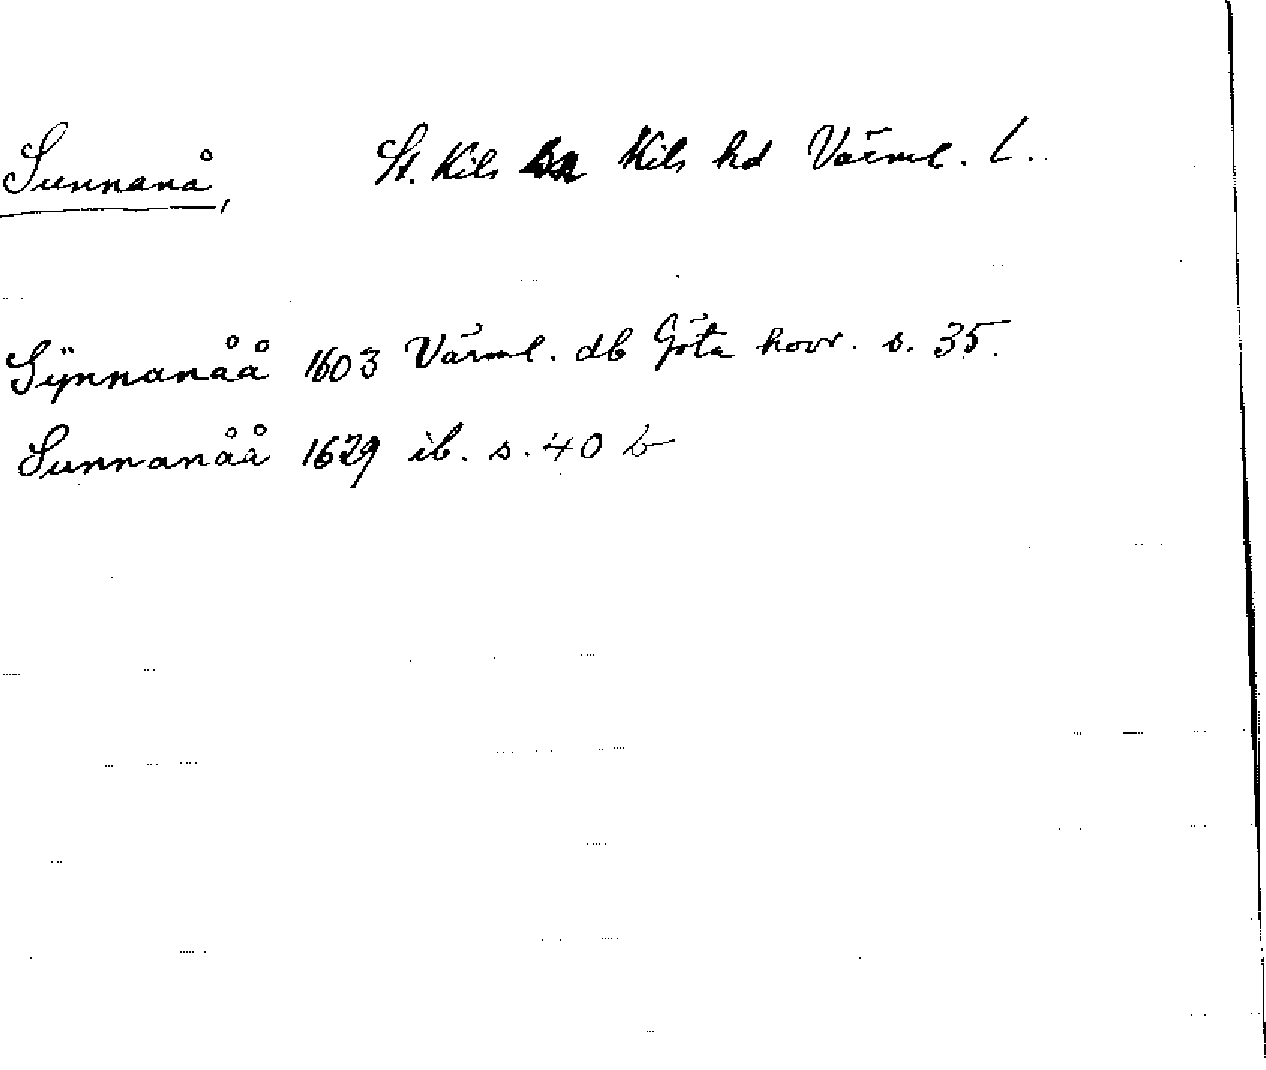 Sunnanå, St. Kils sn Kils hd Värml. l.
Sÿnnanåå 1603 Värml. db Göta hovr. s. 35.
Sunnanåå 1629 ib. s. 40 b